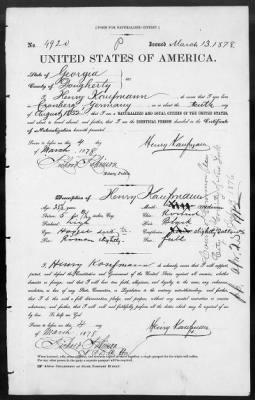 [FORM FOR NATURALIZED CITIZEN.]
No. 4920 P Issued March 13. 1878.
UNITED STATES OF AMERICA.
State of Georgia
County of Dougherty
I, Henry Kaufmann, do swear that I was born
in Cronberg, Germany on or about the tenth day
August 1852; that I am a NATURALIZED AND LOYAL CITIZEN OF THE UNITED STATES,
and about to travel abroad; and further, that I am the IDENTICAL PERSON described in the Certificate
of Naturalization herewith presented.
Sworn to before me this 4 day
of March 1878
Henry Kaufmann
Notary Public
Description of Henry Kaufmann
Age: 25 years
Stature: 5 feet
Eyes:
Nose: Roman slightly
Chin: Round
Hair: Black
Face: full
I, Henry Kaufmann do solemnly swear that I will support,
protect, and defend the Constitution and Government of the United States against all enemies, whether domestic
or foreign; and that I will bear true faith, allegiance, and loyalty to the same, any ordinance,
resolution, or law of any State, Convention, or Legislature to the contrary notwithstanding; and further,
that I do this with a full determination, pledge, and purpose, without any mental reservation or evasion
whatsoever; and further, that I will well and faithfully perform all the duties which may be required of me by
law: So help me God.
Sworn to before me this 4 day
of March 1878
Henry Kaufmann